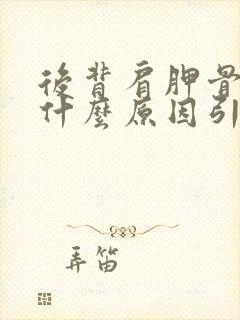 後背肩胛骨
什麼原因引
弄笛